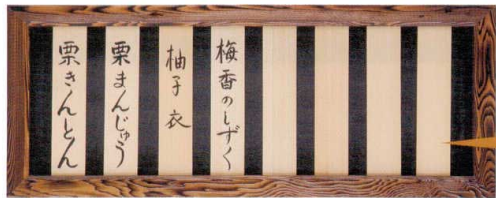 梅香のしずく
柚子衣
栗まんじゅう
栗きんとん